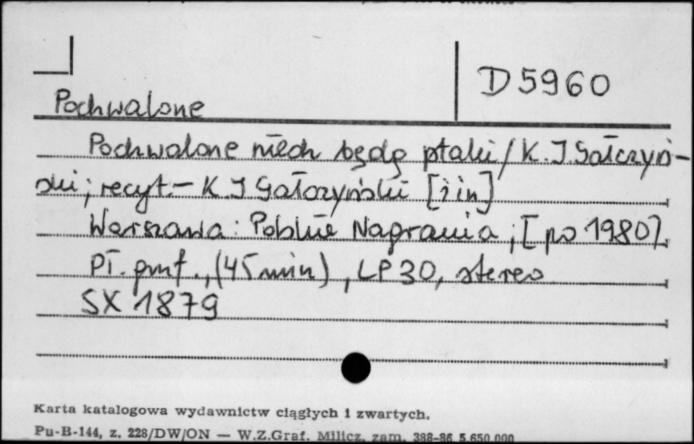 D 5960
Pochwalone
Pochwalone niech będą ptaki / K. I. Gałczyń-
ski ; recyt. - K. I Gałczyński [i in]
Warszawa : Polskie Nagrania, [po 1980].
Pł. gmf., (45 min), LP 30, stereo
SX 1879
Karta katalogowa wydawnictw ciągłych i zwartych.
Pu-B-144, z. 228/DW/ON — W.Z.Graf. Milicz, zam. 388-86 5.650.000